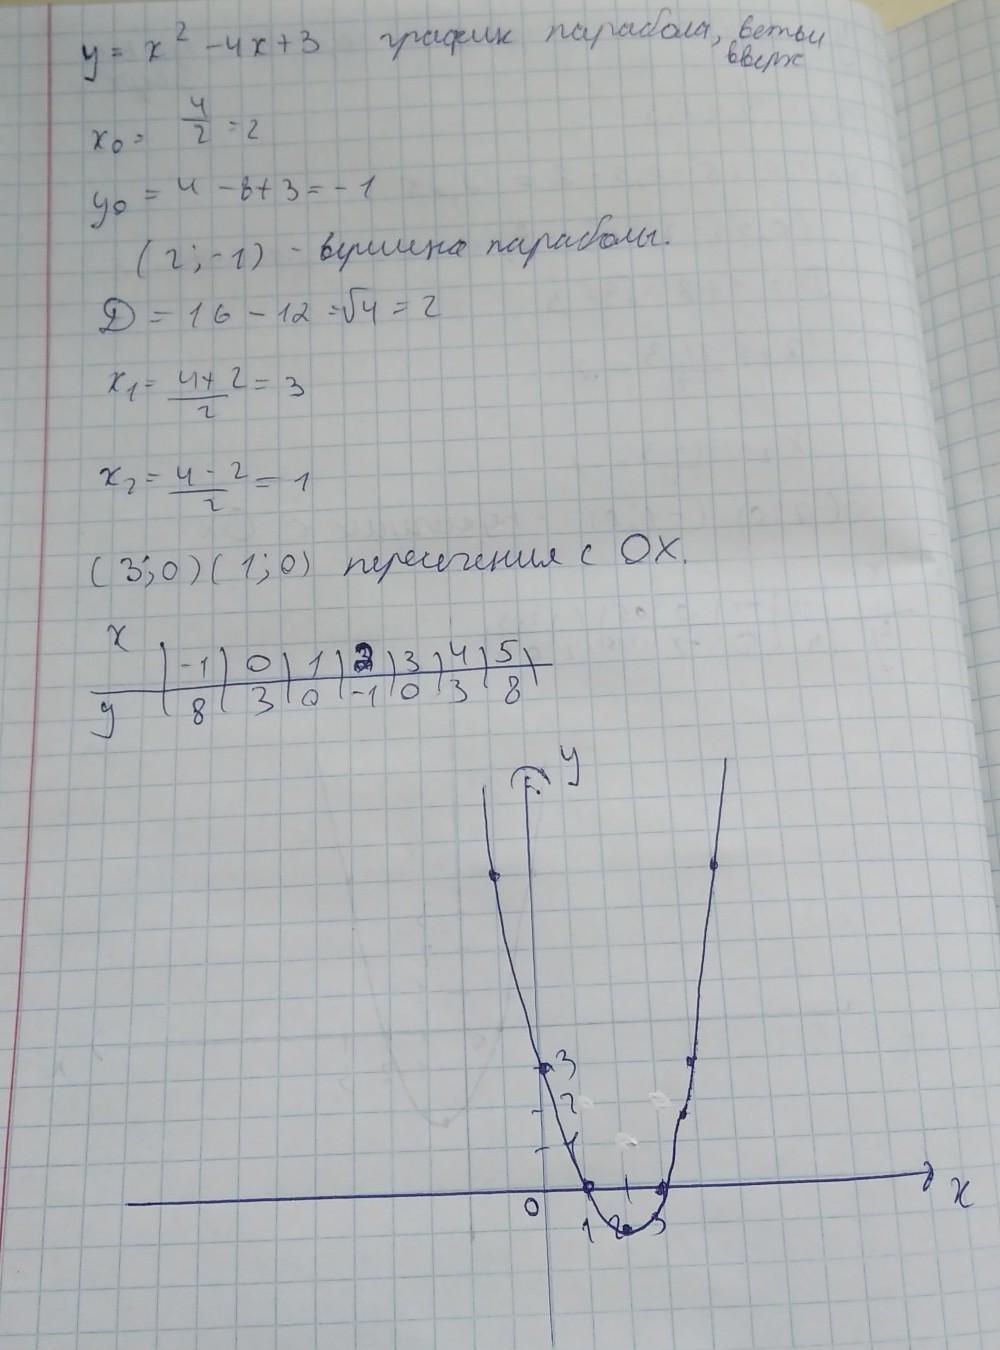 y = x² - 4x + 3 график парабола, ветви
вверх
x₀ = 4/2 = 2
y₀ = 4 - 8 + 3 = - 1
(2; -1) - вершина параболы.
D = 16 - 12 = √4 = 2
x₁ = (4 + 2)/2 = 3
x₂ = (4 - 2)/2 = 1
(3; 0) (1; 0) пересечения с OX.
x | -1 | 0 | 1 | 2 | 3 | 4 | 5 |
y | 8 | 3 | 0 | -1 | 0 | 3 | 8
y
3
2
1
0 1 2 3 x